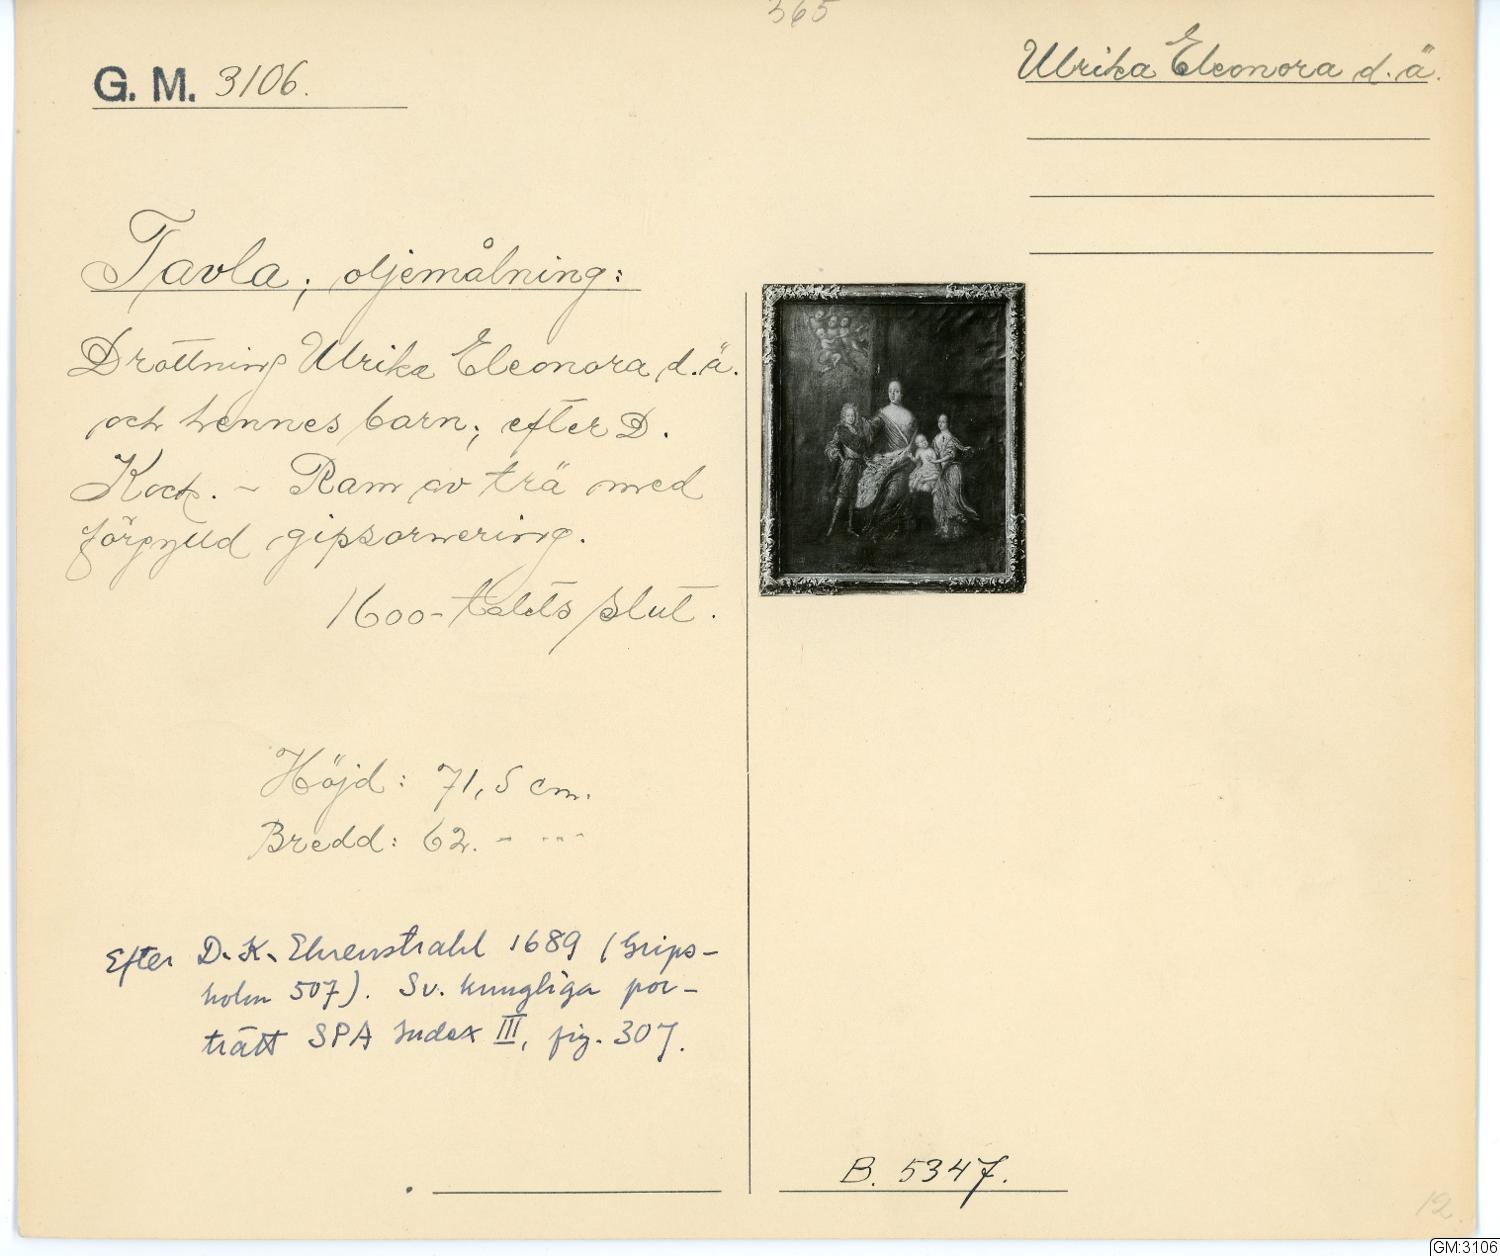 365
G. M. 3106.
Ulrika Eleonora d. ä.
Tavla, oljemålning:
Drottning Ulrika Eleonora d. ä.
och hennes barn; efter D.
Kock. – Ram av trä med
förgylld gipsornering.
1600-talets slut.
Höjd: 71,5 cm.
Bredd: 62. – ---
Efter D. K. Ehrenstrahl 1689 (Grips-
holm 507). Sv. kungliga por-
trätt SPA Index III, fig. 307.
B. 5347.
12
GM:3106